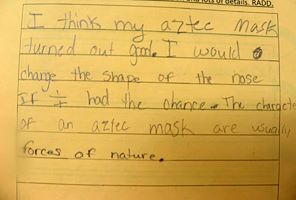 and lots of details. RADD.
I think my aztec mask
turned out good. I would
change the shape of the nose
If I had the chance. The characte
of an aztec mask are usually
forces of nature.